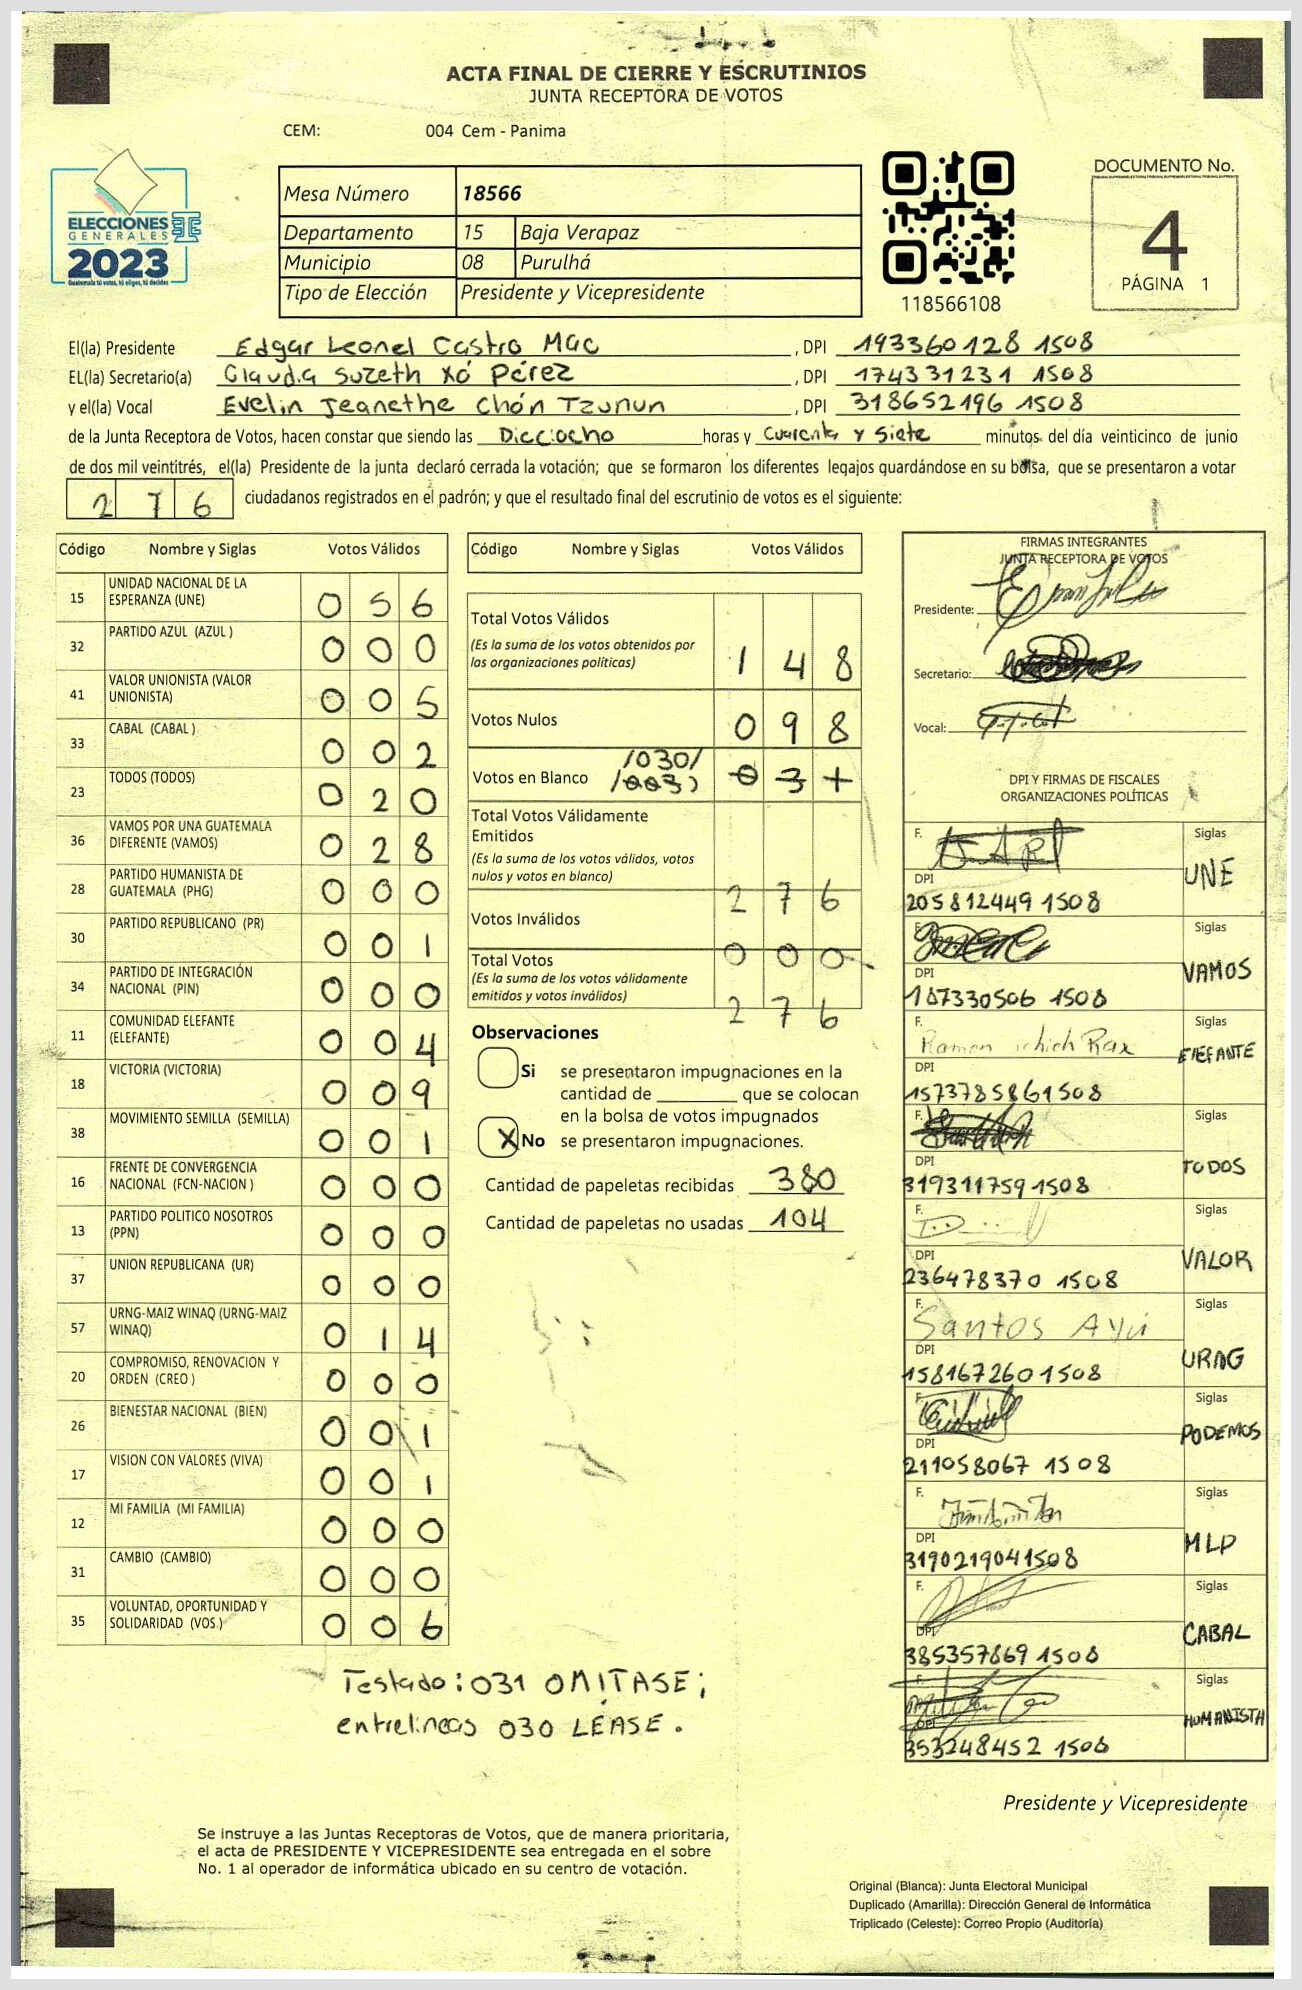 ACTA FINAL DE CIERRE Y ESCRUTINIOS
JUNTA RECEPTORA DE VOTOS
CEM: 004 Cem - Panima
ELECCIONES
GENERALES
2023
Guatemala tú votas, tú eliges, tú decides
Mesa Número 18566
Departamento 15 Baja Verapaz
Municipio 08 Purulhá
Tipo de Elección Presidente y Vicepresidente
118566108
DOCUMENTO No.
4
PÁGINA 1
El(la) Presidente Edgar Leonel Castro Mac, DPI 193360128 1508
EL(la) Secretario(a) Claudia Suzeth Xó Pérez, DPI 174331231 1508
y el(la) Vocal Evelin Jeanethe Chón Tzunun, DPI 318652196 1508
de la Junta Receptora de Votos, hacen constar que siendo las Dieciocho horas y Cuarenta y Siete minutos del día veinticinco de junio
de dos mil veintitrés, el(la) Presidente de la junta declaró cerrada la votación; que se formaron los diferentes legajos guardándose en su bolsa, que se presentaron a votar
276 ciudadanos registrados en el padrón; y que el resultado final del escrutinio de votos es el siguiente:
Código Nombre y Siglas Votos Válidos
15 UNIDAD NACIONAL DE LA ESPERANZA (UNE) 056
32 PARTIDO AZUL (AZUL ) 000
41 VALOR UNIONISTA (VALOR UNIONISTA) 005
33 CABAL (CABAL ) 002
23 TODOS (TODOS) 020
36 VAMOS POR UNA GUATEMALA DIFERENTE (VAMOS) 028
28 PARTIDO HUMANISTA DE GUATEMALA (PHG) 000
30 PARTIDO REPUBLICANO (PR) 001
34 PARTIDO DE INTEGRACIÓN NACIONAL (PIN) 000
11 COMUNIDAD ELEFANTE (ELEFANTE) 004
18 VICTORIA (VICTORIA) 009
38 MOVIMIENTO SEMILLA (SEMILLA) 001
16 FRENTE DE CONVERGENCIA NACIONAL (FCN-NACION ) 000
13 PARTIDO POLITICO NOSOTROS (PPN) 000
37 UNION REPUBLICANA (UR) 000
57 URNG-MAIZ WINAQ (URNG-MAIZ WINAQ) 014
20 COMPROMISO, RENOVACION Y ORDEN (CREO ) 000
26 BIENESTAR NACIONAL (BIEN) 001
17 VISION CON VALORES (VIVA) 001
12 MI FAMILIA (MI FAMILIA) 000
31 CAMBIO (CAMBIO) 000
35 VOLUNTAD, OPORTUNIDAD Y SOLIDARIDAD (VOS.) 006
Testado: 031 OMITASE;
entrelineas 030 LÉASE.
Código Nombre y Siglas Votos Válidos
Total Votos Válidos 148
(Es la suma de los votos obtenidos por
las organizaciones políticas)
Votos Nulos 098
Votos en Blanco /030/
Total Votos Válidamente
Emitidos
(Es la suma de los votos válidos, votos
nulos y votos en blanco) 276
Votos Inválidos 000
Total Votos
(Es la suma de los votos válidamente
emitidos y votos inválidos) 276
Observaciones
Si se presentaron impugnaciones en la
cantidad de ________ que se colocan
en la bolsa de votos impugnados
X No se presentaron impugnaciones.
Cantidad de papeletas recibidas 380
Cantidad de papeletas no usadas 104
FIRMAS INTEGRANTES
JUNTA RECEPTORA DE VOTOS
Presidente:
Secretario:
Vocal:
DPI Y FIRMAS DE FISCALES
ORGANIZACIONES POLÍTICAS
F. Siglas
DPI UNE
205812449 1508
F. Siglas
DPI VAMOS
187330506 1508
F. Ramon Ichich Rax Siglas
DPI ELEFANTE
157378586 1508
F. Siglas
DPI TODOS
319311759 1508
F. Siglas
DPI VALOR
236478370 1508
F. Santos Ayú Siglas
DPI URNG
158167260 1508
F. Siglas
DPI PODEMOS
211058067 1508
F. Siglas
DPI MLP
319021904 1508
F. Siglas
DPI CABAL
385357869 1508
F. Siglas
DPI HUMANISTA
353248452 1508
Presidente y Vicepresidente
Se instruye a las Juntas Receptoras de Votos, que de manera prioritaria,
el acta de PRESIDENTE Y VICEPRESIDENTE sea entregada en el sobre
No. 1 al operador de informática ubicado en su centro de votación.
Original (Blanca): Junta Electoral Municipal
Duplicado (Amarilla): Dirección General de Informática
Triplicado (Celeste): Correo Propio (Auditoría)